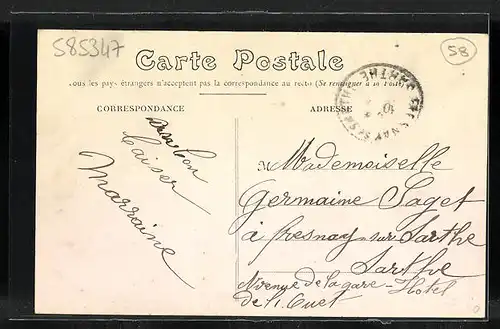 585347
58
Carte Postale
Tous les pays étrangers n'acceptent pas la correspondance au recto (Se renseigner à la Poste)
CORRESPONDANCE
ADRESSE
FRESNAY-S-SARTHE SARTHE
bon
baiser
Marraine
Mademoiselle
Germaine Paget
à fresnay sur Sarthe
Sarthe
Avenue de la gare - Hotel
de l'Ouet